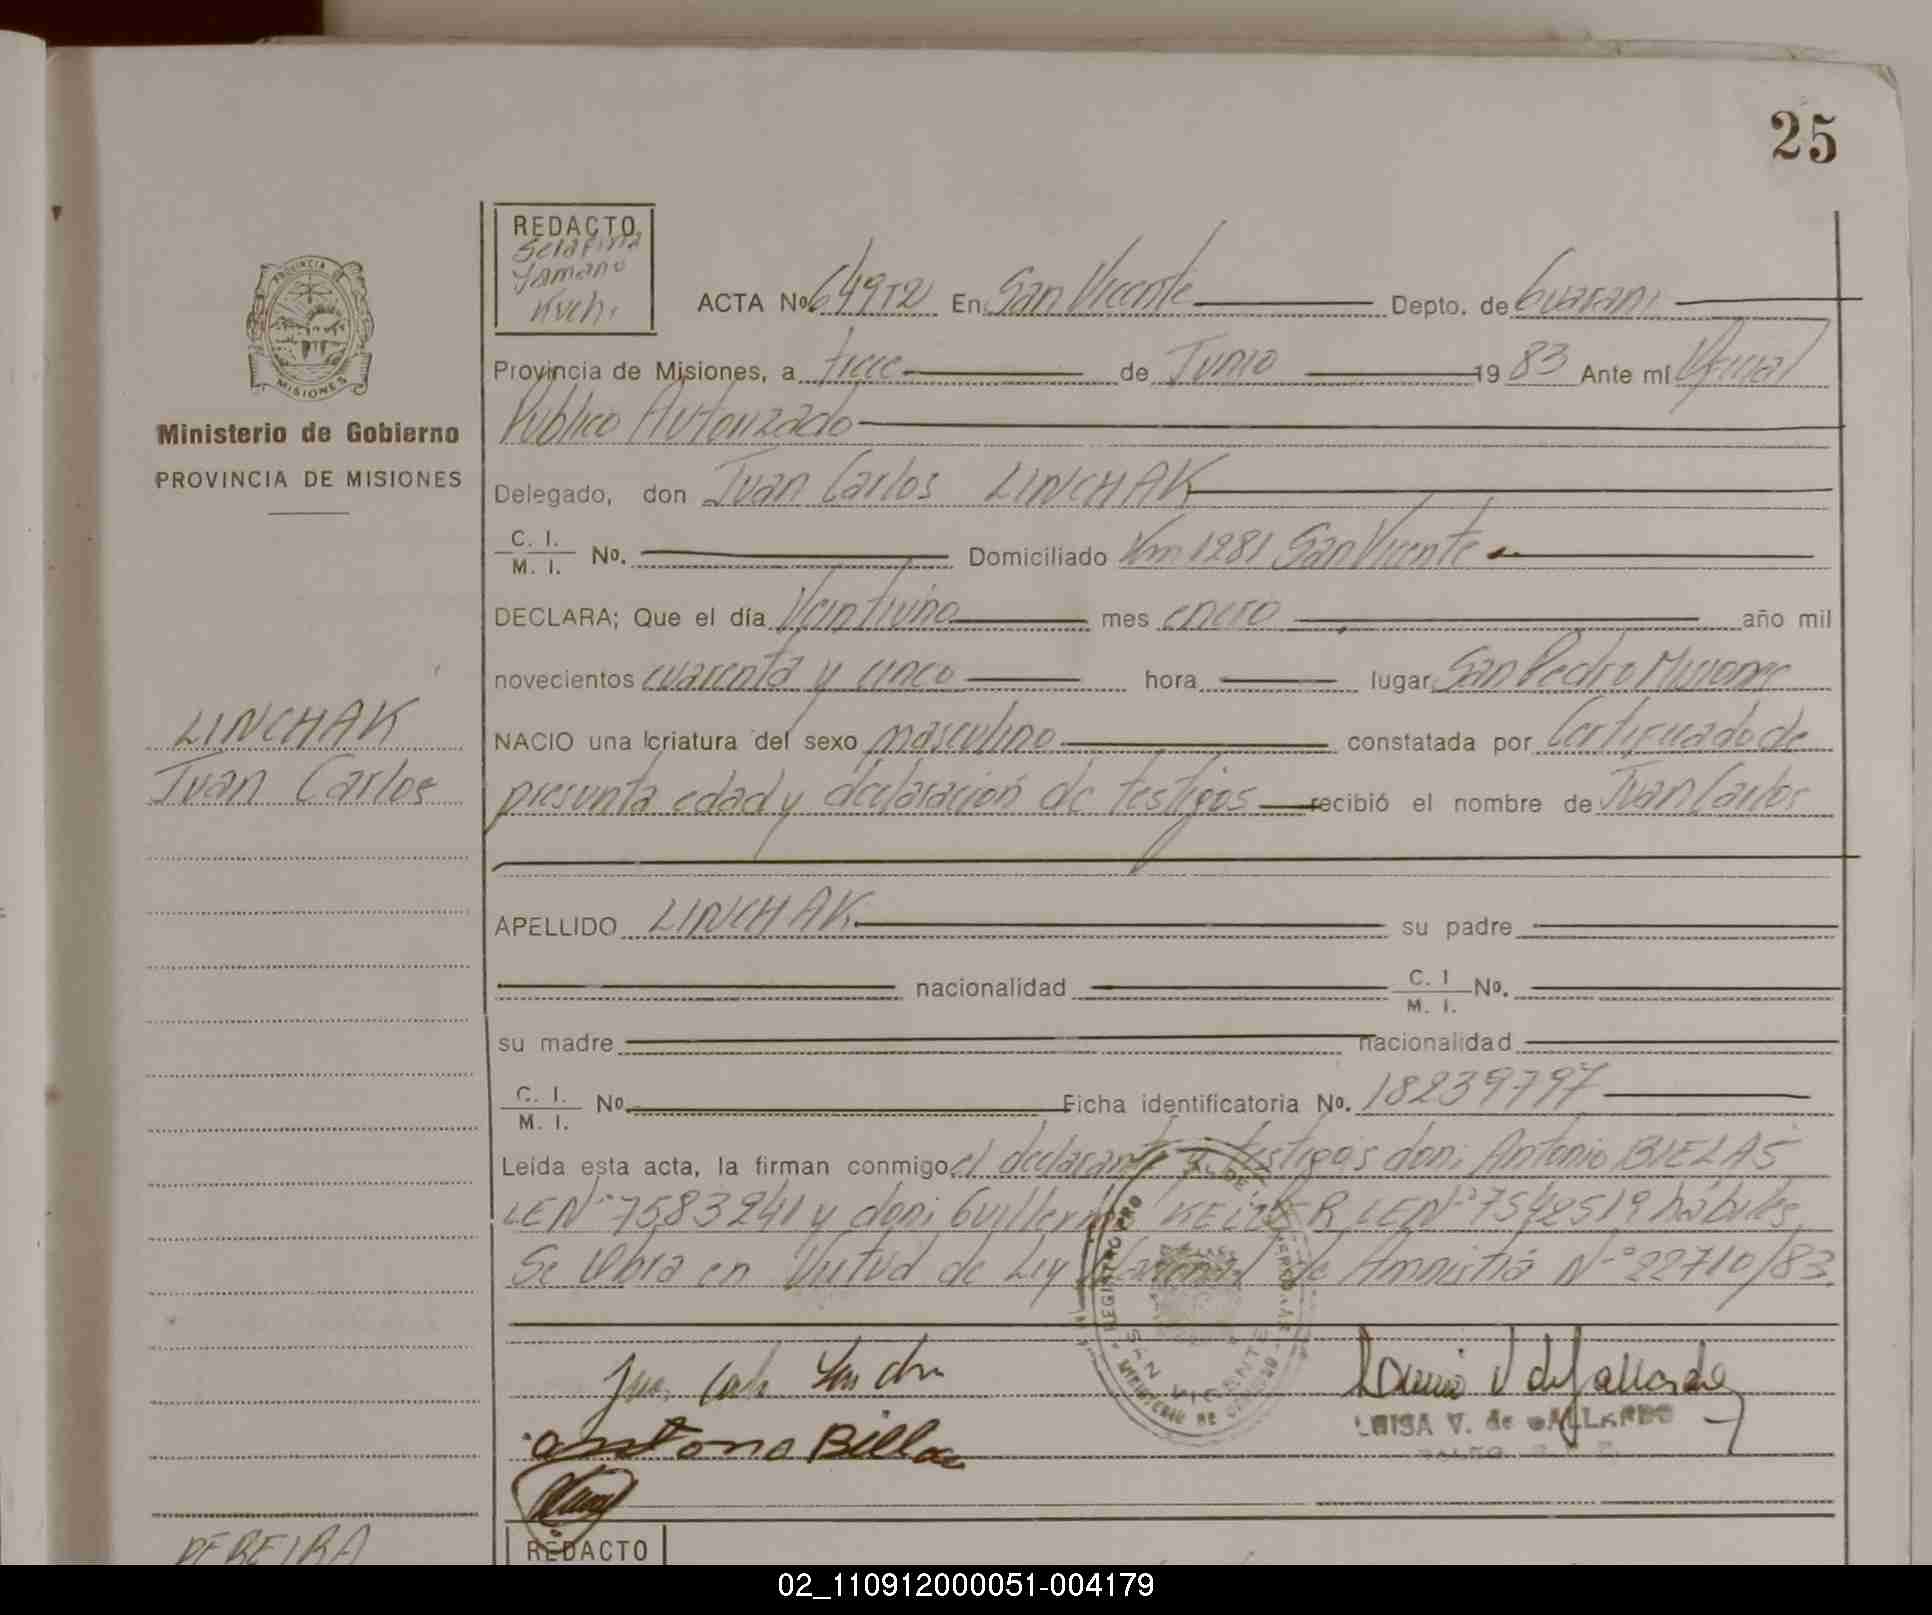 25
REDACTO
Serafina
Yamano
Kuchi
ACTA No. 649T2 En San Vicente Depto. de Guarani
Provincia de Misiones, a trece de Junio 1983 Ante mí Oficial
Publico Autorizado
Ministerio de Gobierno
PROVINCIA DE MISIONES
Delegado, don Juan Carlos LINCHAK
C. I. / M. I. No. Domiciliado Km 1281 San Vicente
DECLARA; Que el día Veintiuno mes enero año mil
novecientos cuarenta y cinco hora lugar San Pedro Misiones
LINCHAK
Juan Carlos
NACIO una criatura del sexo masculino constatada por Certificado de
presunta edad y declaración de testigos recibió el nombre de Juan Carlos
APELLIDO LINCHAK su padre
nacionalidad C. I / M. I. No.
su madre nacionalidad
C. I. / M. I. No. Ficha identificatoria No. 18239797
Leída esta acta, la firman conmigo el declarante y testigos don: Antonio BIELAS
LEN° 7583241 y don: Guillermo LEN° 7542519 hábiles
Se labra en Virtud de Ley Nacional de Amnistia N° 22710/83
SAN VICENTE
Antonio Billas
LUISA V. de GALLARDO
PEREIRA
REDACTO
02_110912000051-004179